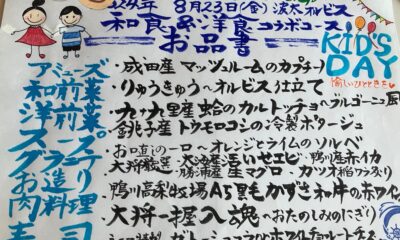 2024年 8月23日(金) 波奈オルビス
和食&洋食コラボコース
お品書
KID'S DAY
愉しいひとときを
アミューズ ・成田産 マッシュルームのカプチーノ
和前菜 ・りゅうきゅう〜オルビス仕立て
洋前菜 ・九十九里産 蛤のカルトッチョ ヘラルゴーニュ風
スープ ・銚子産 トウモロコシの冷製ポタージュ
グラニテ お口直しの一口〜オレンジとライムのソルベ
お造り 大将厳選
勝浦産 生マグロ・カツオ
鴨川産 赤イカ
肉料理 ・鴨川高梨牧場 A5黒毛かずさ和牛の赤ワイン
寿司 ・大将一握入魂 〜おたのしみのにぎり